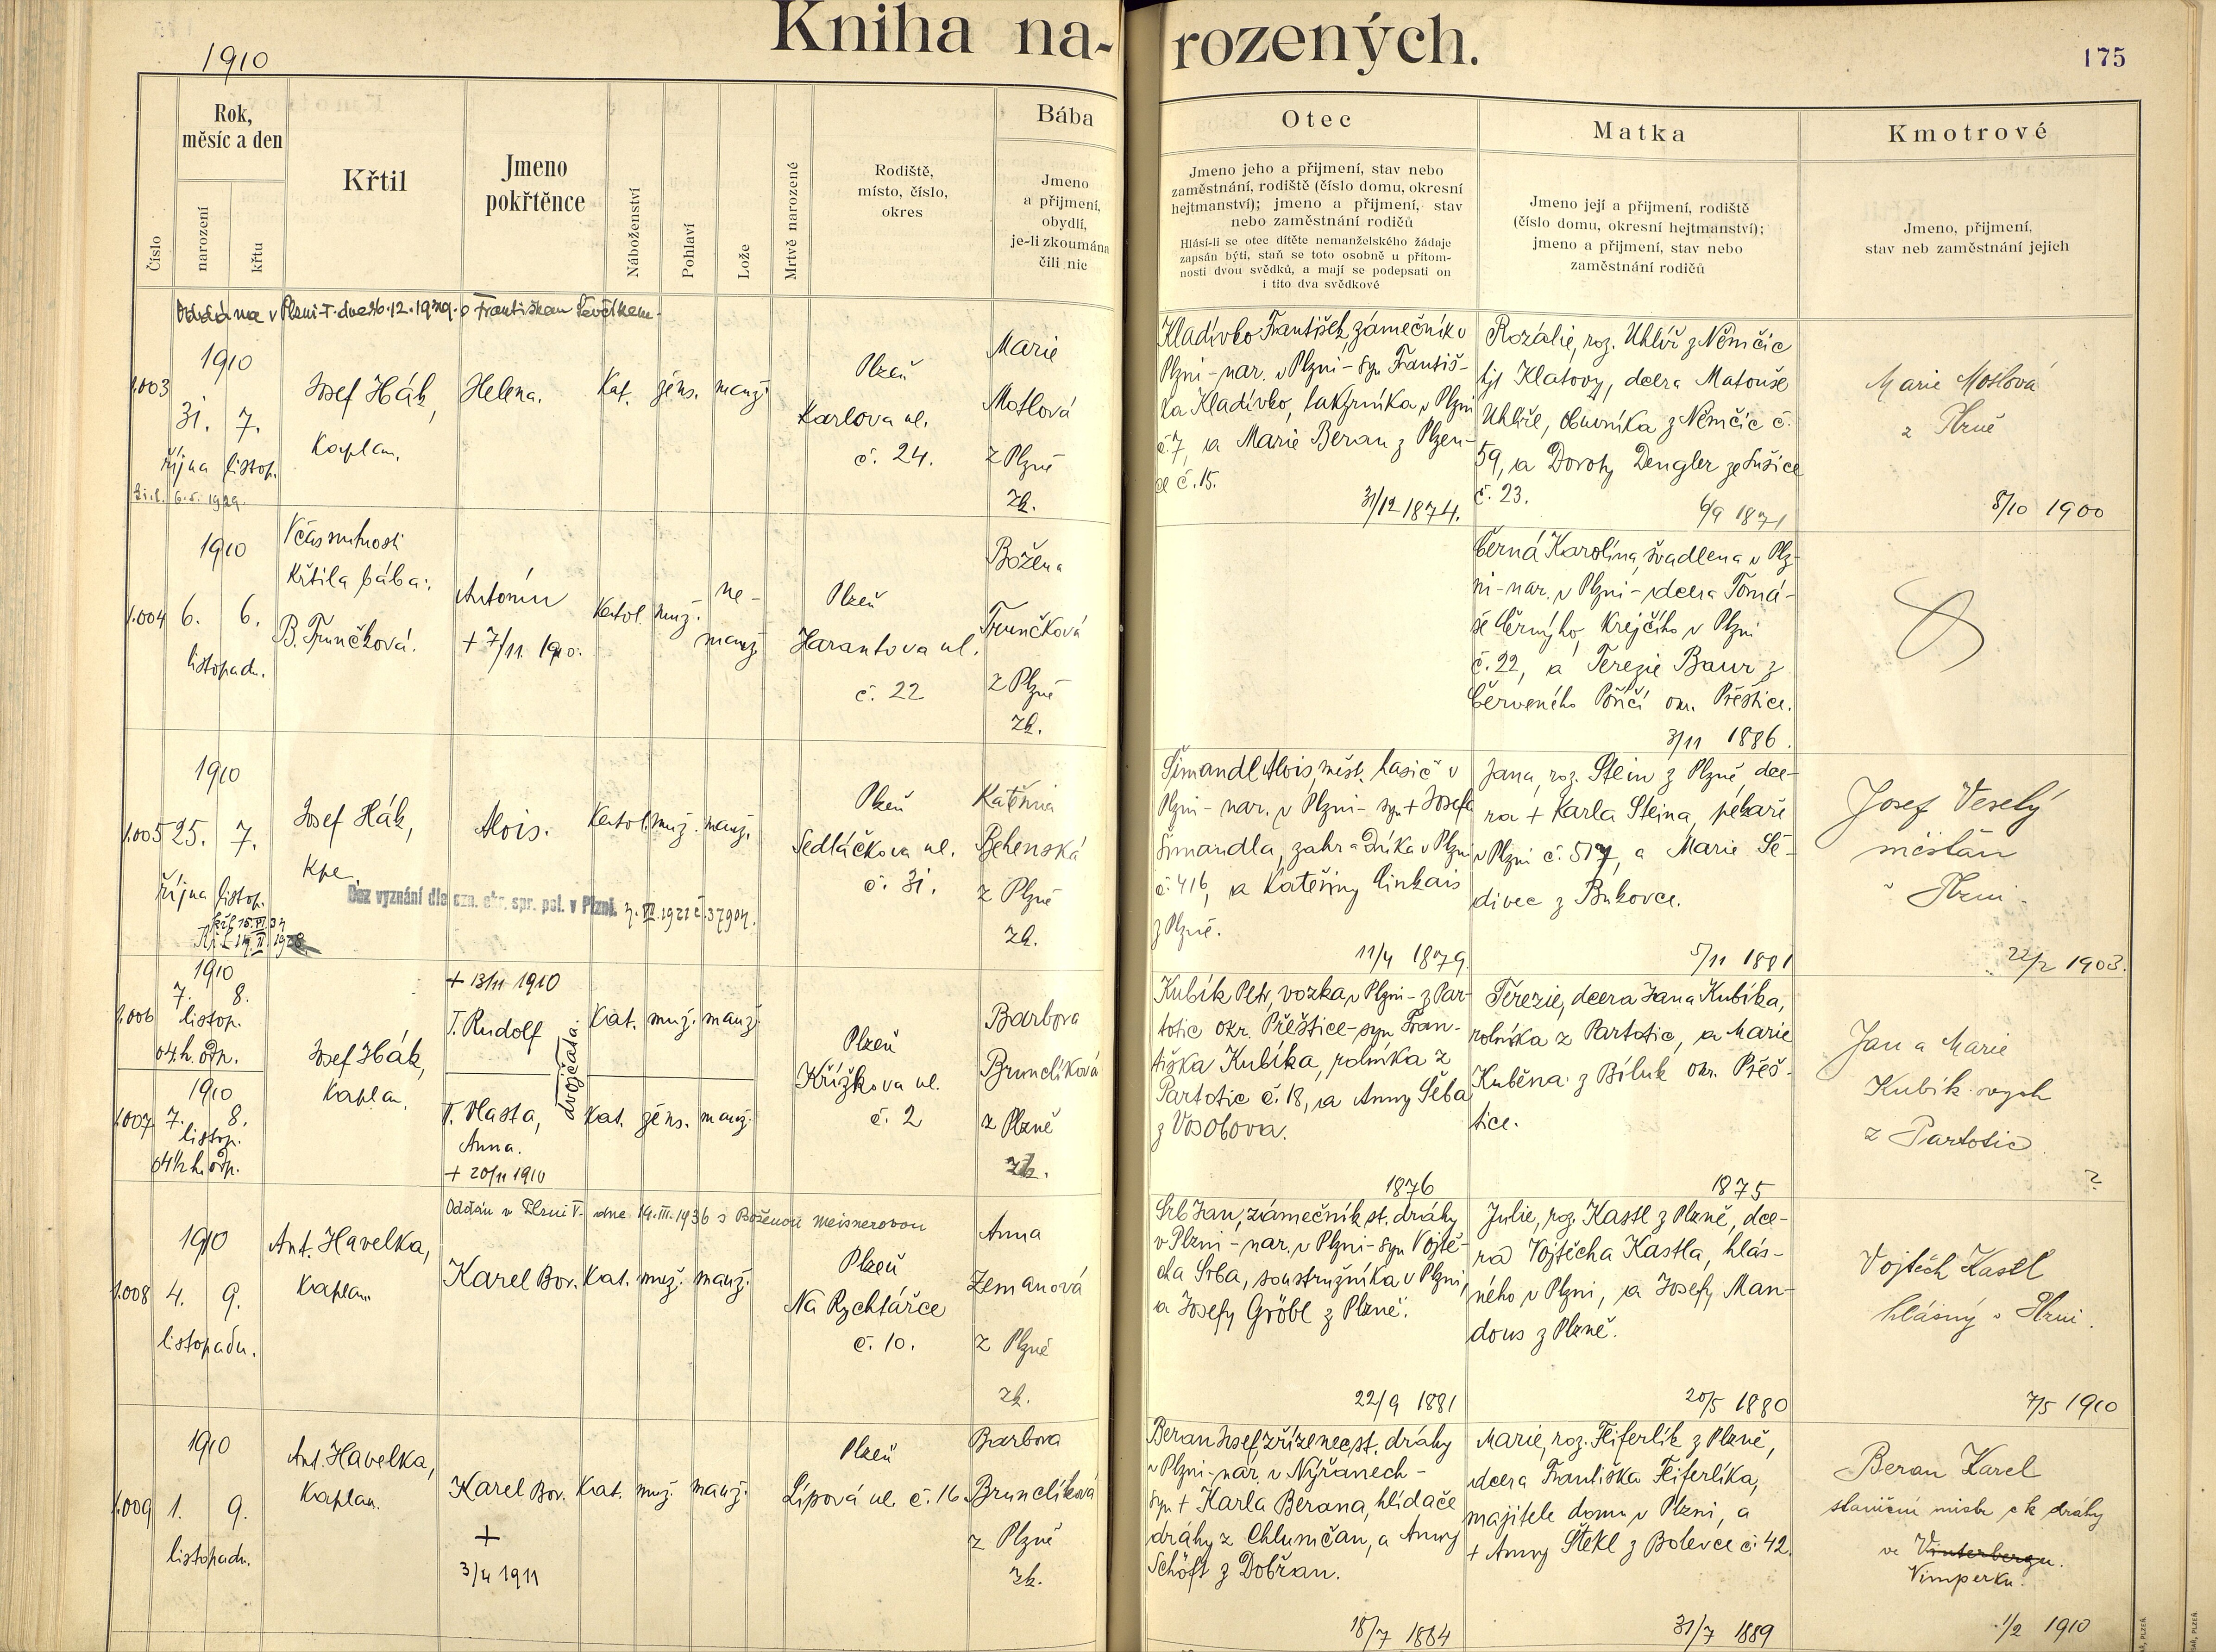 1910
Kniha na-
rozených.
175
Číslo
Rok,
měsíc a den
narození
křtu
Křtil
Jmeno
pokřtěnce
Náboženství
Pohlaví
Lože
Mrtvě narozené
Rodiště,
místo, číslo,
okres
Bába
Jmeno
a přijmení,
obydlí,
je-li zkoumána
čili nic
Otec
Jmeno jeho a přijmení, stav nebo
zaměstnání, rodiště (číslo domu, okresní
hejtmanství); jmeno a přijmení, stav
nebo zaměstnání rodičů
Hlásí-li se otec dítěte nemanželského žádaje
zapsán býti, staň se toto osobně u přítom-
nosti dvou svědků, a mají se podepsati on
i tito dva svědkové
Matka
Jmeno její a přijmení, rodiště
(číslo domu, okresní hejtmanství);
jmeno a přijmení, stav nebo
zaměstnání rodičů
Kmotrové
Jmeno, přijmení,
stav neb zaměstnání jejich
v Plzni I. dne 26.12.1929. s Františkem Ševčíkem.
1.003
1910
31. 7.
října listop.
6.5.1929.
Josef Hák,
Kaplan.
Helena.
Kat. žens. manž.
Plzeň
Karlova ul.
č. 24.
Marie
Motlová
z Plzně
zk.
Kladívko František, zámečník v
Plzni - nar. v Plzni - syn Františ-
ka Kladívko, lakýrníka v Plzni
č. 7, a Marie Beran z Plzen-
ce č. 15.
31/12 1874.
Rozálie, roz. Uhlíř z Němčic
hjt Klatovy, dcera Matouše
Uhlíře, obuvníka z Němčic č.
59, a Doroty Dengler ze Sušice
č. 23.
6/9 1871
Marie Motlová
z Plzně
8/10 1900
1.004
1910
6. 6.
listopadu.
V čas nutnosti
křtila bába:
B. Trunčková.
Antonín
+ 7/11. 1910.
Katol. muž. ne-
manž.
Plzeň
Harantova ul.
č. 22
Božena
Trunčková
z Plzně
zk.
Černá Karolina, švadlena v Plz-
ni - nar. v Plzni - dcera Tomá-
še Černýho, Krejčího v Plzni
č. 22, a Terezie Baur z
Červeného Poříčí okr. Přeštice.
3/11 1886.
1.005
1910
25. 7.
října listop.
Josef Hák,
kpl.
Alois.
Katol. muž. manž.
Bez vyznání dle ozn. okr. spr. pol. v Plzni.
Plzeň
Sedláčkova ul.
č. 31.
Kateřina
Behenská
z Plzně
zk.
Šimandl Alois, měst. hasič v
Plzni - nar. v Plzni - syn + Josefa
Šimandla, zahradníka v Plzni
č. 416, a Kateřiny Cinkais
z Plzně.
11/4 1879.
Jana, roz. Stein z Plzně dce-
ra + Karla Steina, pekaře
v Plzni č. 517, a Marie Še-
divec z Bukovce.
5/11 1881
Josef Veselý
měšťan
v Plzni.
22/2 1903.
1.006
1910
7. 8.
listop.
04 h. odp.
Josef Hák,
Kaplan.
+ 13/11 1910
I. Rudolf
dvojčata.
Kat. muž. manž.
1.007
1910
7. 8.
listop.
04 1/2 h. odp.
II. Vlasta,
Anna.
+ 20/11 1910
Kat. žens. manž.
Plzeň
Křížkova ul.
č. 2
Barbora
Brunclíková
z Plzně
zk.
Kubík Petr, vozka v Plzni - z Par-
totic okr. Přeštice - syn Fran-
tiška Kubíka, rolníka z
Partotic č. 18, a Anny Šeba
z Vosobova.
1876
Terezie, dcera Jana Kubíka,
rolníka z Partotic, a Marie
Kuběna z Biluk okr. Přeš-
tice.
1875
Jan a Marie
Kubíkových
z Partotic
?
Oddán v Plzni V. dne 14.III.1936 s Boženou Meisnerovou
1.008
1910
4. 9.
listopadu.
Ant. Havelka,
Kaplan.
Karel Bor.
Kat. muž. manž.
Plzeň
Na Rychtářce
č. 10.
Anna
Zemanová
z Plzně
zk.
Srb Jan, zámečník st. dráhy
v Plzni - nar. v Plzni - syn Vojtě-
cha Srba, soustružníka v Plzni,
a Josefy Gröbl z Plzně.
22/9 1881
Julie, roz. Kastl z Plzně, dce-
ra Vojtěcha Kastla, hlás-
ného v Plzni, a Josefy Man-
dous z Plzně.
20/5 1880
Vojtěch Kastl
hlásný v Plzni.
7/5 1910
1.009
1910
1. 9.
listopadu.
Ant. Havelka,
Kaplan.
Karel Bor.
+
3/4 1911
Kat. muž. manž.
Plzeň
Lípová ul. č. 16.
Barbora
Brunclíková
z Plzně
zk.
Beran Josef, zřízenec st. dráhy
v Plzni - nar. v Nýřanech -
syn + Karla Berana, hlídače
dráhy z Chlumčan, a Anny
Schöft z Dobřan.
18/7 1884
Marie, roz. Feiferlík z Plzně,
dcera Františka Feiferlíka,
majitele domu v Plzni, a
+ Anny Štekl z Bolevce č. 42.
31/7 1889
Beran Karel
staniční mistr c k dráhy
ve Vinterbergu.
Vimperku.
1/2 1910